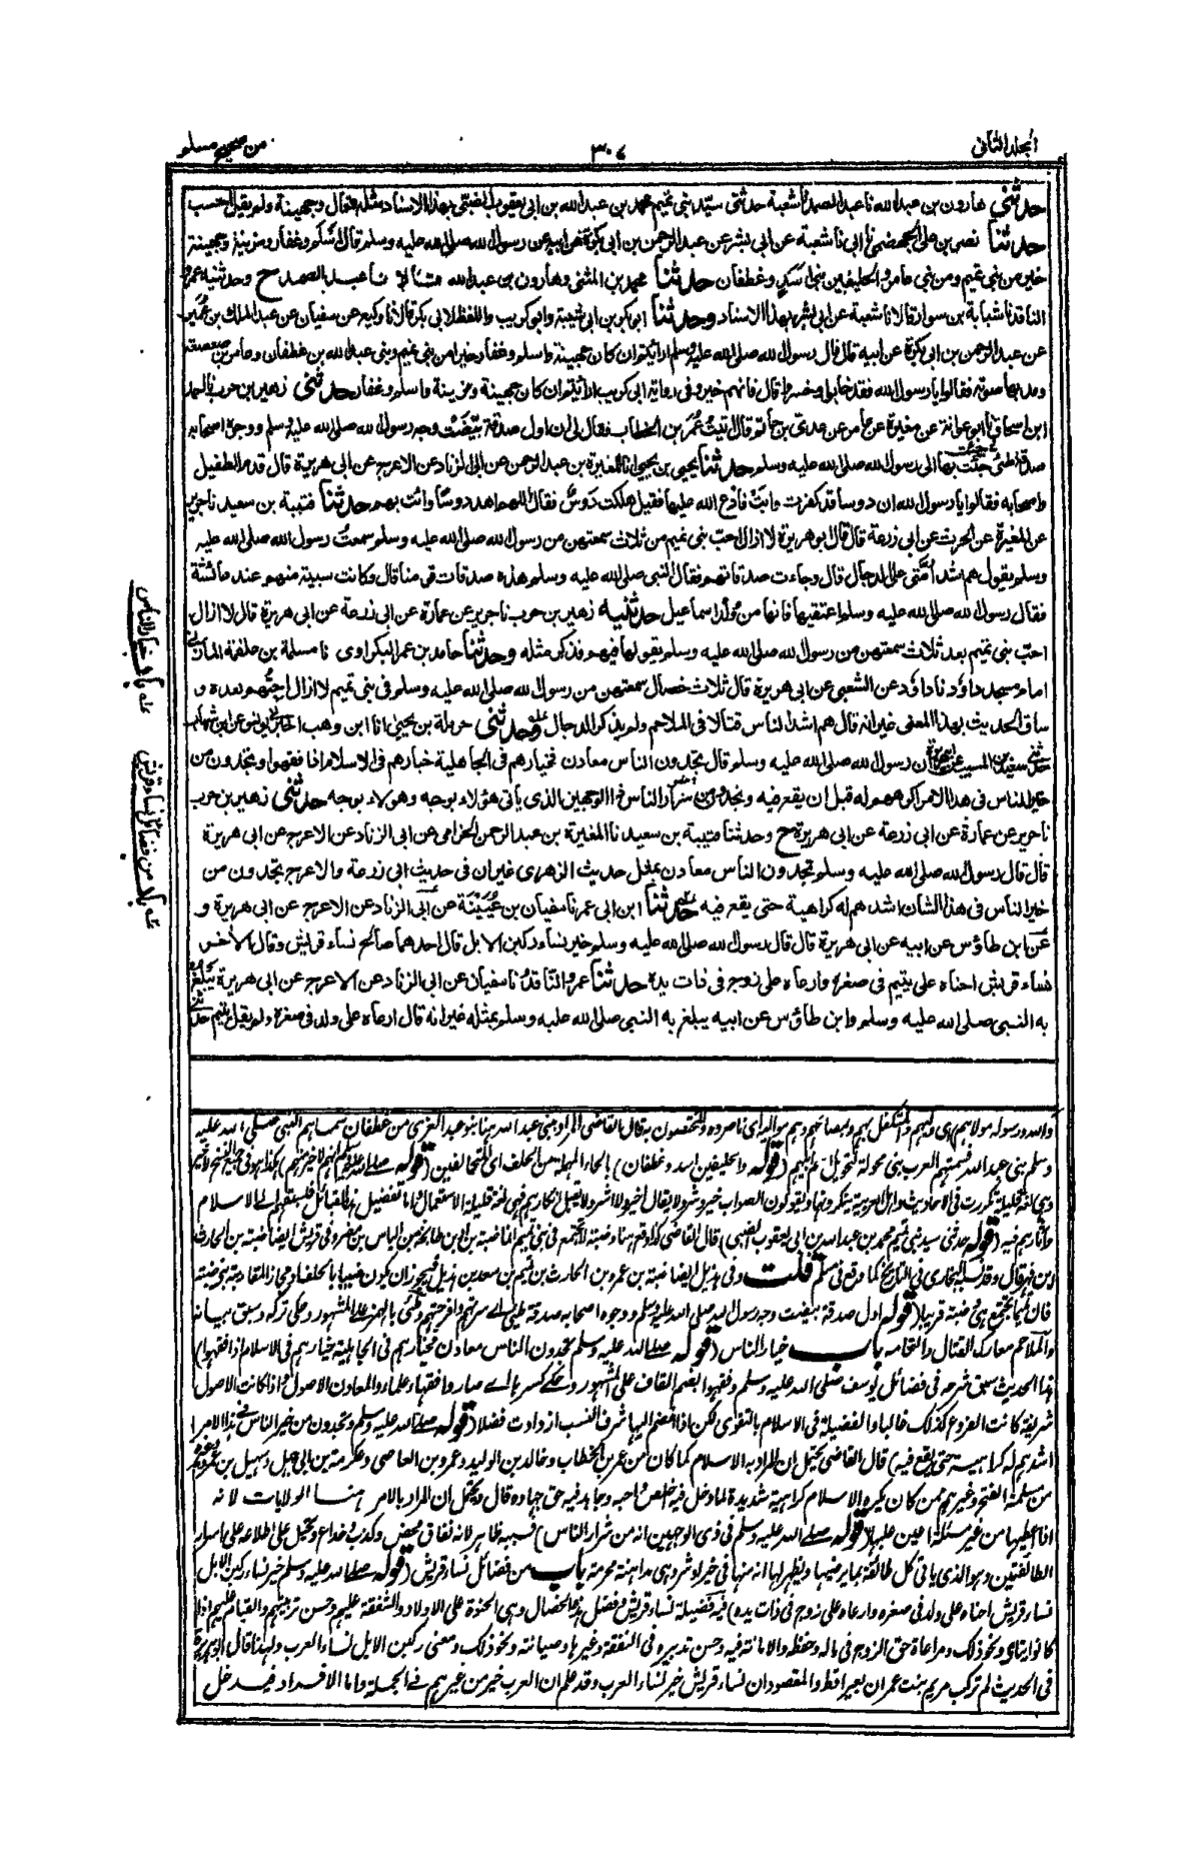 المجلد الثاني
٣٠٧
من صحيح مسلم
حدثني هارون بن عبد الله نا عبد الصمد نا شعبة حدثني سيد بني تميم محمد بن عبد الله بن ابي يعقوب الضبي بهذا الاسناد مثله وقال وجهينة ولم يقل احسب
حدثنا نصر بن علي الجهضمي نا ابي نا شعبة عن ابي بشر عن عبد الرحمن بن ابي بكرة عن ابيه عن رسول الله صلى الله عليه وسلم قال اسلم وغفار ومزينة وجهينة
خير من بني تميم ومن بني عامر والحليفين بني اسد وغطفان حدثنا محمد بن المثنى وهارون بن عبد الله قالا نا عبد الصمد ح وحدثنيه عمرو
الناقد نا شبابة بن سوار قالا نا شعبة عن ابي بشر بهذا الاسناد وحدثنا ابو بكر بن ابي شيبة وابو كريب واللفظ لابي بكر قالا نا وكيع عن سفيان عن عبد الملك بن عمير
عن عبد الرحمن بن ابي بكرة عن ابيه قال قال رسول الله صلى الله عليه وسلم ارأيتم ان كان جهينة واسلم وغفار خيرا من بني تميم وبني عبد الله بن غطفان وعامر بن صعصعة
ومد بها صوته فقالوا يا رسول الله فقد خابوا وخسروا قال فانهم خير وفي رواية ابي كريب ارأيتم ان كان جهينة ومزينة واسلم وغفار حدثني زهير بن حرب نا احمد
ابن اسحاق نا ابو عوانة عن مغيرة عن عامر عن عدي بن حاتم قال اتيت عمر بن الخطاب فقال لي ان اول صدقة بيضت وجه رسول الله صلى الله عليه وسلم ووجوه اصحابه
صدقة طيئ جئت بها الى رسول الله صلى الله عليه وسلم حدثنا يحيى بن يحيى انا المغيرة بن عبد الرحمن عن ابي الزناد عن الاعرج عن ابي هريرة قال قدم الطفيل
واصحابه فقالوا يا رسول الله ان دوسا قد كفرت وابت فادع الله عليها فقيل هلكت دوس فقال اللهم اهد دوسا وائت بهم حدثنا قتيبة بن سعيد نا جرير
عن المغيرة عن الحرث عن ابي زرعة قال قال ابو هريرة لا ازال احب بني تميم من ثلاث سمعتهن من رسول الله صلى الله عليه وسلم سمعت رسول الله صلى الله عليه
وسلم يقول هم اشد امتي على الدجال قال وجاءت صدقاتهم فقال النبي صلى الله عليه وسلم هذه صدقات قومنا قال وكانت سبية منهم عند عائشة
فقال رسول الله صلى الله عليه وسلم اعتقيها فانها من ولد اسماعيل حدثنيه زهير بن حرب نا جرير عن عمارة عن ابي زرعة عن ابي هريرة قال لا ازال
احب بني تميم بعد ثلاث سمعتهن من رسول الله صلى الله عليه وسلم يقولها فيهم فذكر مثله وحدثنا حامد بن عمر البكراوي نا مسلمة بن علقمة المازني
امام مسجد داود نا داود عن الشعبي عن ابي هريرة قال ثلاث خصال سمعتهن من رسول الله صلى الله عليه وسلم في بني تميم لا ازال احبهم بعده و
ساق الحديث بهذا المعنى غير انه قال هم اشد الناس قتالا في الملاحم ولم يذكر الدجال وحدثني حرملة بن يحيى انا ابن وهب اخبرني يونس عن ابن شهاب
حدثني سعيد بن المسيب عن ابي هريرة ان رسول الله صلى الله عليه وسلم قال تجدون الناس معادن فخيارهم في الجاهلية خيارهم في الاسلام اذا فقهوا وتجدون من
خير الناس في هذا الامر اكرههم له قبل ان يقع فيه وتجدون من شرار الناس ذا الوجهين الذي يأتي هؤلاء بوجه وهؤلاء بوجه حدثني زهير بن حرب
نا جرير عن عمارة عن ابي زرعة عن ابي هريرة ح وحدثنا قتيبة بن سعيد نا المغيرة بن عبد الرحمن الحزامي عن ابي الزناد عن الاعرج عن ابي هريرة
قال قال رسول الله صلى الله عليه وسلم تجدون الناس معادن بمثل حديث الزهري غير ان في حديث ابي زرعة والاعرج تجدون من
خير الناس في هذا الشان اشدهم له كراهية حتى يقع فيه حدثنا ابن ابي عمر نا سفيان بن عيينة عن ابي الزناد عن الاعرج عن ابي هريرة و
عن ابن طاؤس عن ابيه عن ابي هريرة قال قال رسول الله صلى الله عليه وسلم خير نساء ركبن الابل قال احدهما صالح نساء قريش وقال الآخر
نساء قريش احناه على يتيم في صغره وارعاه على زوج في ذات يده حدثنا عمرو الناقد نا سفيان عن ابي الزناد عن الاعرج عن ابي هريرة يبلغ
به النبي صلى الله عليه وسلم وابن طاؤس عن ابيه يبلغ به النبي صلى الله عليه وسلم بمثله غير انه قال ارعاه على ولد في صغره ولم يقل يتيم حدثني
باب خيار الناس
باب من فضائل نساء قريش
والله ورسوله مولاهم اي وليهم والمتكفل بهم وبمصالحهم وهم مواليه اي ناصروه والمختصون به قال القاضي المراد ببني عبد الله هنا بنو عبد العزى من غطفان سماهم النبي صلى الله عليه
وسلم بني عبد الله فسمتهم العرب بني محولة لتحويل اسم ابيهم (قوله والحليفين اسد وغطفان) بالحاء المهملة من الحلف اي المتحالفين (قوله صلى الله عليه وسلم انهم لاخير منهم) هكذا هو في جميع النسخ لاخير
وهي لغة قليلة تكررت في الاحاديث واهل العربية ينكرونها ويقولون الصواب خير وشر ولا يقال اخير ولا اشر ولا يقبل انكارهم فهي لغة قليلة الاستعمال واما تفضيل هذه القبائل فلسبقهم الى الاسلام
وآثارهم فيه (قوله حدثني سيد بني تميم محمد بن عبد الله بن ابي يعقوب الضبي) قال القاضي كذا وقع هنا وضبة لا تجتمع في بني تميم انما ضبة بن اد بن طابخة بن الياس بن مضر وفي قريش ايضا ضبة بن الحارث
ابن فهر قال وقد نسبه البخاري في التاريخ كما وقع في مسلم قلت وفي هذيل ايضا ضبة بن عمرو بن الحارث بن تميم بن سعد بن هذيل فيجوز ان يكون ضبيا بالحلف او مجازا لمقاربته بني ضبة
فان تميما تجتمع هي وضبة قريبا (قوله اول صدقة بيضت وجه رسول الله صلى الله عليه وسلم ووجوه اصحابه صدقة طيئ) اي سرتهم وافرحتهم وطيئ بالهمز على المشهور وحكي تركه وسبق بيانه
والملاحم معارك القتال والتحامه باب خيار الناس (قوله صلى الله عليه وسلم تجدون الناس معادن فخيارهم في الجاهلية خيارهم في الاسلام اذا فقهوا)
هذا الحديث سبق شرحه في فضائل يوسف صلى الله عليه وسلم وفقهوا بضم القاف على المشهور وحكي كسرها اي صاروا فقهاء علماء والمعادن الاصول واذا كانت الاصول
شريفة كانت الفروع كذلك غالبا والفضيلة في الاسلام بالتقوى لكن اذا انضم اليها شرف النسب ازدادت فضلا (قوله صلى الله عليه وسلم وتجدون من خير الناس في هذا الامر
اشدهم له كراهية حتى يقع فيه) قال القاضي يحتمل ان المراد به الاسلام كما كان من عمر بن الخطاب وخالد بن الوليد وعمرو بن العاصي وعكرمة بن ابي جهل وسهيل بن عمرو وغيرهم
من مسلمة الفتح وغيرهم ممن كان يكره الاسلام كراهية شديدة لما دخل فيه اخلص واحبه وجاهد فيه حق جهاده قال ويحتمل ان المراد بالامر هنا الولايات لانه
اذا اعطيها من غير مسئلة اعين عليها (قوله صلى الله عليه وسلم في ذي الوجهين انه من شرار الناس) فسببه ظاهر لانه نفاق محض وكذب وخداع وتحيل على اطلاعه على اسرار
الطائفتين وهو الذي يأتي كل طائفة بما يرضيها ويظهر لها انه منها في خير او شر وهي مداهنة محرمة باب من فضائل نساء قريش (قوله صلى الله عليه وسلم خير نساء ركبن الابل
نساء قريش احناه على ولد في صغره وارعاه على زوج في ذات يده) فيه فضيلة نساء قريش وفضل هذه الخصال وهي الحنوة على الاولاد والشفقة عليهم وحسن تربيتهم والقيام عليهم اذا
كانوا يتامى ونحو ذلك ومراعاة حق الزوج في ماله وحفظه والامانة فيه وحسن تدبيره في النفقة وغيرها وصيانته ونحو ذلك ومعنى ركبن الابل نساء العرب ولهذا قال ابو هريرة
في الحديث لم تركب مريم بنت عمران بعيرا قط والمقصود ان نساء قريش خير نساء العرب وقد علم ان العرب خير من غيرهم في الجملة واما الافراد فيدخل